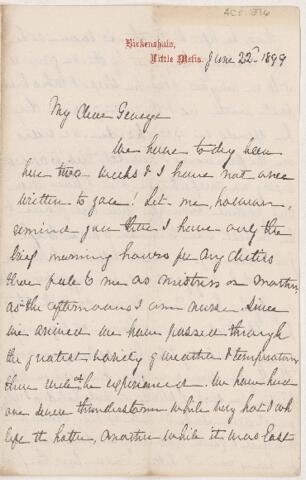 Birkenshaw,
Little Metis.
June 22nd 1899
My dear George
We have to day been
here two weeks & I have not once
written to you! Let me, however,
remind you that I have only the
brief morning hours for any duties
there fall to me as mistress or mother
as the afternoons I am nurse. Since
we arrived we have passed through
the greatest variety of weather & temperature
that could be experienced. We have had
one severe thunderstorm while very hot I
the hotter, another while it was East